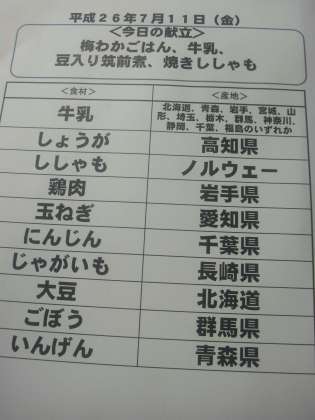 平成26年7月11日（金）
＜今日の献立＞
梅わかごはん、牛乳、
豆入り筑前煮、焼きししゃも
＜食材＞ ＜産地＞
牛乳 北海道、青森、岩手、宮城、山
形、埼玉、栃木、群馬、神奈川、
静岡、千葉、福島のいずれか
しょうが 高知県
ししゃも ノルウェー
鶏肉 岩手県
玉ねぎ 愛知県
にんじん 千葉県
じゃがいも 長崎県
大豆 北海道
ごぼう 群馬県
いんげん 青森県